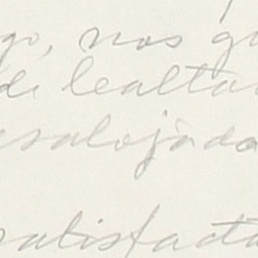 go, nos
de lealta
esalojado
satisfacto